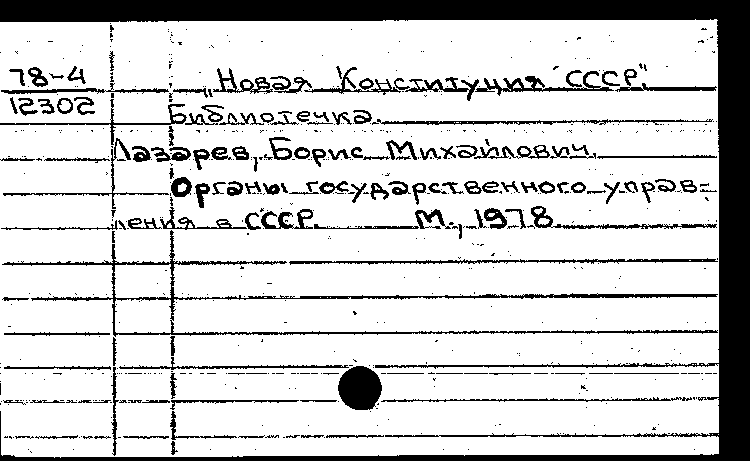 78-4
12302
„Новая Конституция СССР".
Библиотечка.
Лазарев, Борис Михайлович.
Органы государственного управ-
ления в СССР. М., 1978.